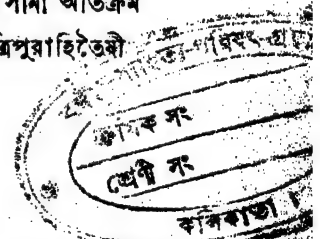 সীমা অতিক্রম
ত্রিপুরাহিতৈষী
সাহিত্য-পরিষৎ-গ্রন্থ
ক্রমিক সং
শ্রেণী সং
কলিকাতা।